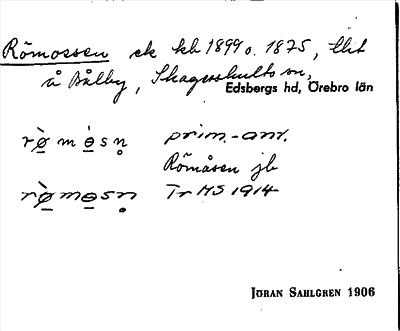 Römossen ek kb 1899 o. 1875, tlit
å Bålby, Skagershults sn,
Edsbergs hd, Örebro län
rø̀mȯsn̥ prim.-anv.
Römåsen jb
rø̀mɵsn̥ Tr MS 1914
JÖRAN SAHLGREN 1906